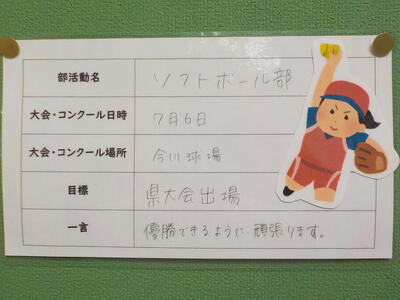 部活動名 ソフトボール部
大会・コンクール日時 7月6日
大会・コンクール場所 今川球場
目標 県大会出場
一言 優勝できるように、頑張ります。